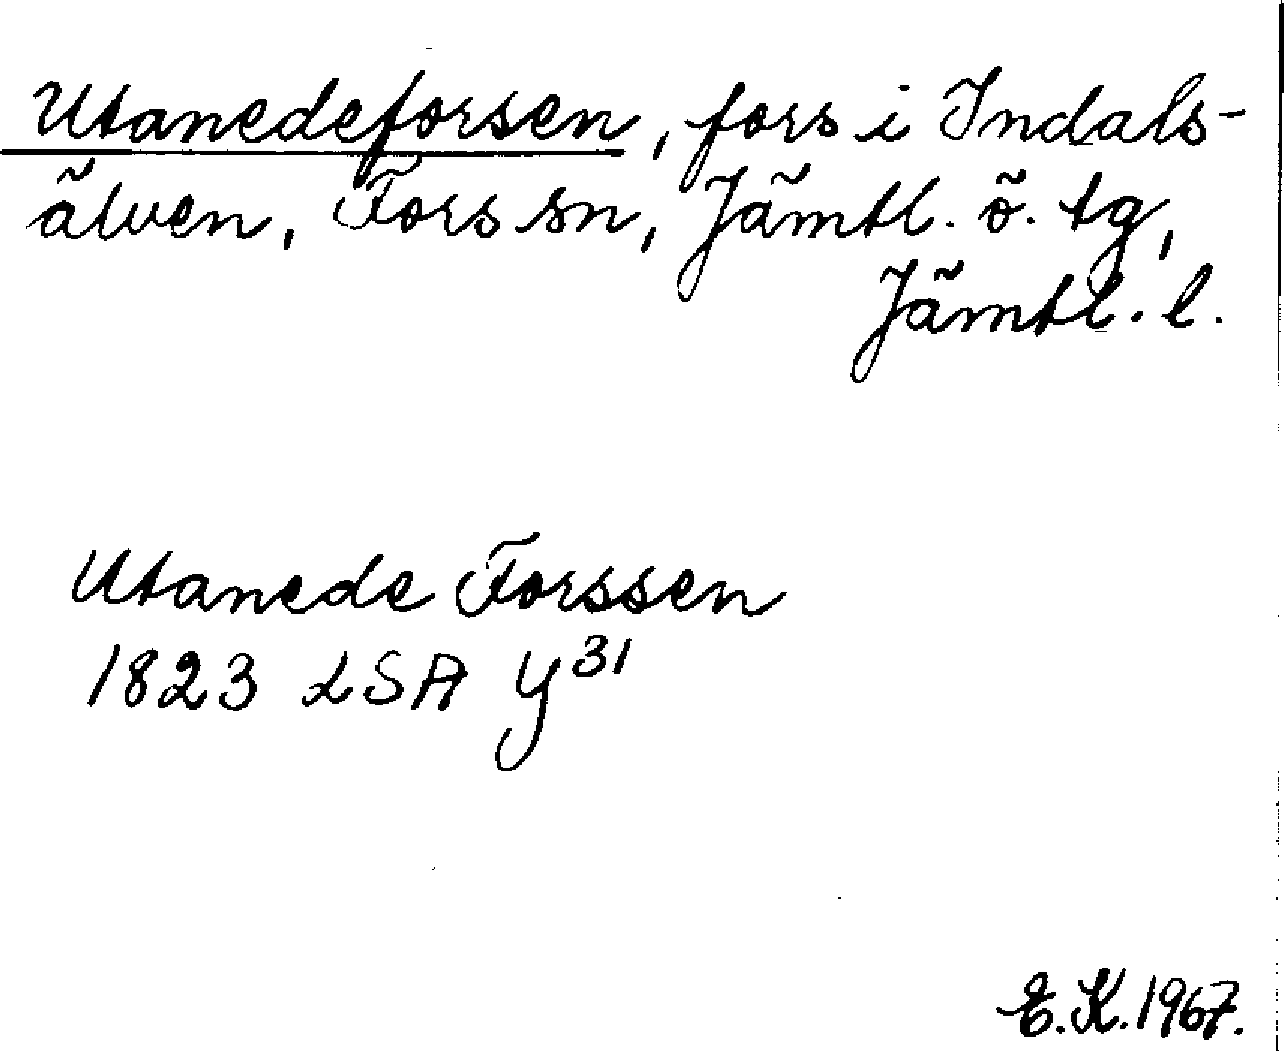 Utanedeforsen, fors i Indals-
älven, Fors sn, Jämtl. ö. tg,
Jämtl. l.
Utanede Forssen
1823 LSA Y³¹
E.K. 1967.